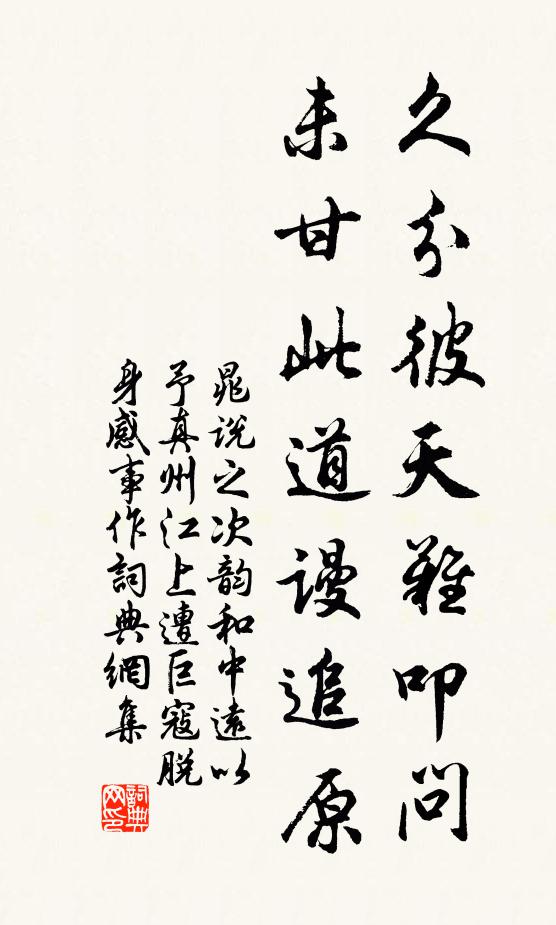 久分彼天難叩問
未甘此道謾追原
晁説之次韵和中遠以
予真州江上遭巨寇脱
身感事作詞典網集
詞典网印